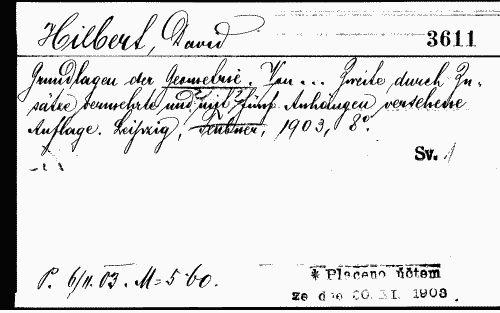 Hilbert, David
3611
Grundlagen der Geometrie. Von ... Zweite, durch Zu-
sätze vermehrte und mit fünf Anhängen versehene
Auflage. Leipzig, Teubner, 1903, 8°.
Sv. 1
P. 6/11. 03. M = 5·60.
* Placeno účtem
ze dne 30. XI. 1903.